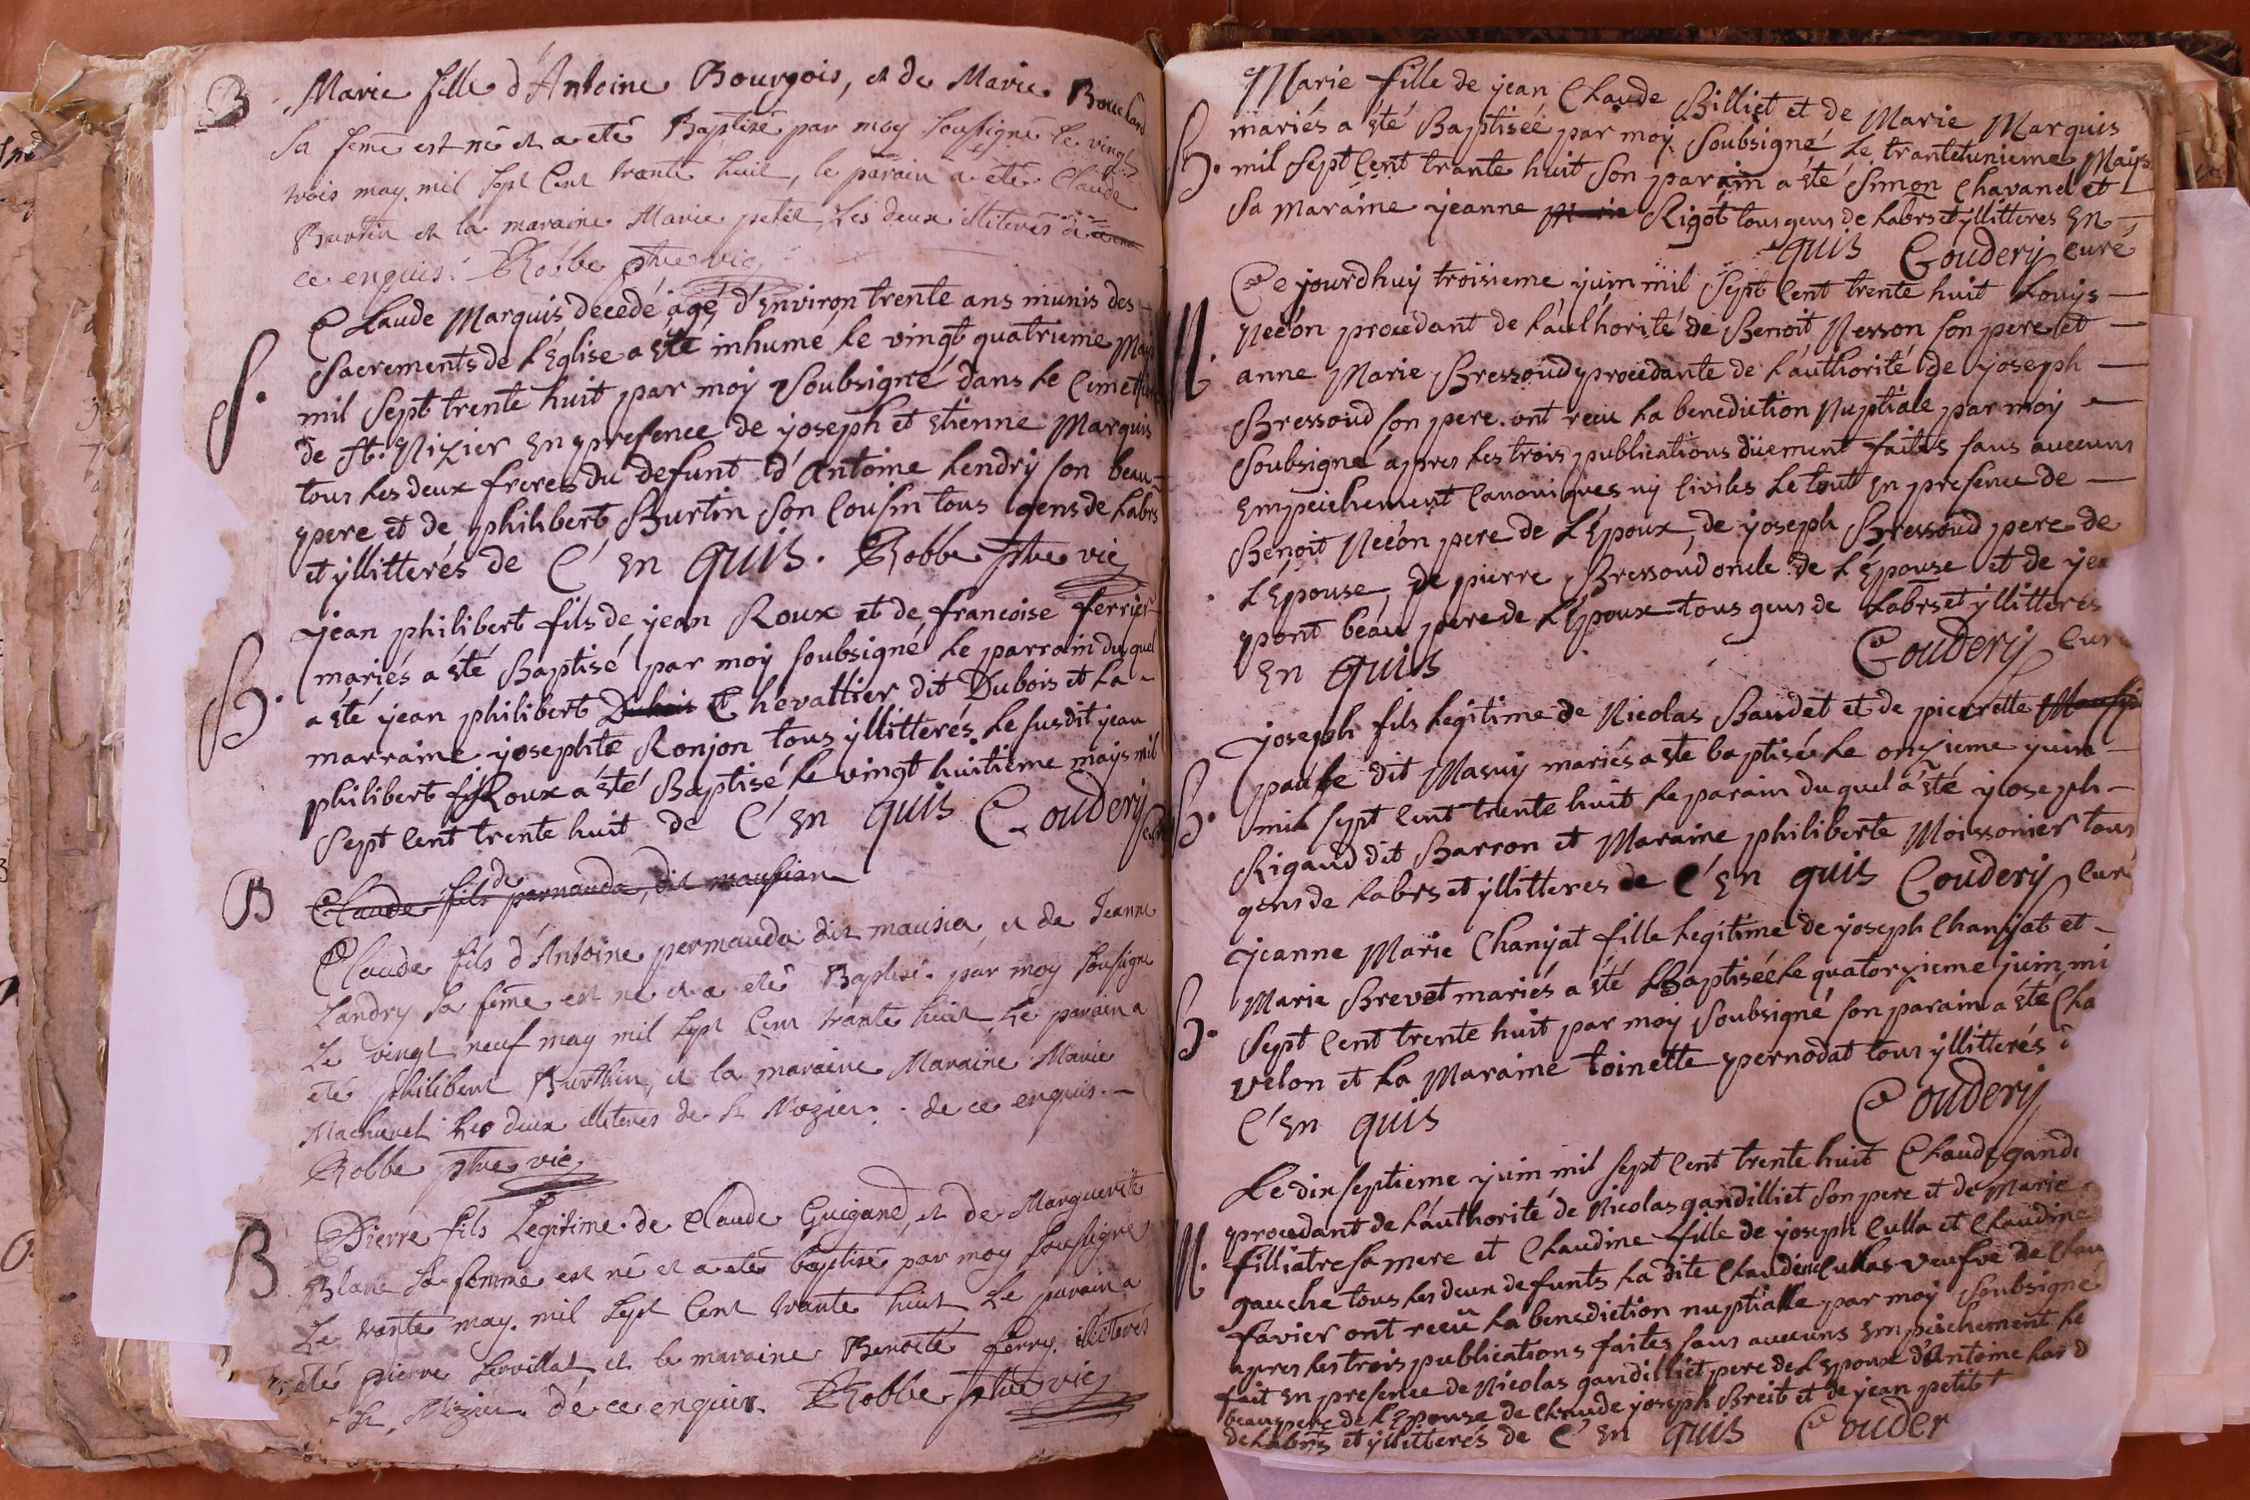 B Marie fille d'Antoine Bourgois, et de Marie
Sa feme est né et a eté Baptisé par moy soussigné le vingt
trois may mil sept cent trante huit, le parain a eté Claude
Burtin et la maraine Marie petit les deux illiterés de
ce enquis. Robbe ptre vic
Claude Marquis decedé agé d'Environ trente ans munis des
S. Sacrements de L'Eglise a Eté inhumé le vingt quatrieme May
mil Sept trente huit par moy Soubsigné dans le Cimettiere
de St. Nizier En presence de joseph et Etienne Marquis
tous les deux freres du defunt d'Antoine Lendry son beau
pere et de philibert Burtin son Cousin tous gens de Labrs
et yllitterés de C'En quis. Robbe ptre vic
jean philibert fils de jean Roux et de francoise ferrier
B. mariés a Eté Baptisé par moy soubsigné le parrain duquel
a Eté jean philibert Dubois Chevallier dit Dubois et La
marraine josephte Ronjon tous yllitterés le susdit jean
philibert Roux a Eté Baptisé le vingt huitieme mays mil
Sept Cent trente huit de C'En quis Coudery curé
B Claude fils de pernauda, dit mausian
Claude fils d'Antoine permauda dit mausia, et de Jeanne
Landry sa feme est né et a eté Baptisé par moy soussigné
Le vingt neuf may mil sept Cent trante huit Le parain a
eté philibert Burthin, et la maraine Maraine Marie
les deux illiterés de St Nizier. de ce enquis.
Robbe ptre vic
B Pierre fils Legitime de Claude Guigand, et de Marguerite
Blanc sa femme est né et a eté baptisé par moy soussigné
Le trante may mil sept Cent trante huit Le parain a
eté pierre et la maraine Benoite ferry illeterés
St Nizier de ce enquis. Robbe ptre vic
Marie fille de jean Claude Billiet et de Marie Marquis
B. mariés a Eté Baptiséé par moy Soubsigné Le trantetunieme Mays
mil Sept Cent trante huit Son parain a Eté Simon Chavand et
Sa Maraine jeanne Marie Rigot tous gens de Labrs et yllitteres En
quis Coudery curé
Ce jourdhuy troisieme juin mil Sept Cent trente huit Louys
N. Neeón procedant de L'authorité de Benoit Nesson son pere et
anne Marie Bressoud procedante de L'authorité de joseph
Bressoud son pere. ont receu La benediction Nuptiale par moy
Soubsigné apres les trois publications düement faites sans aucuns
Empeichement Canoniques ny Civiles Le tout En presence de
Benoit Neeón pere de L'Epoux, de joseph Bressoud pere de
L'Epouse, de pierre Bressoud oncle de L'Epouse et de
pont beau pere de L'Epoux tous gens de Labrs et yllitterés
En quis Coudery Curé
joseph fils Legitime de Nicolas Baudet et de pierrette
B. paule dit Masuy mariés a Eté baptisée Le onzieme juin
mil sept Cent trente huit Le parain duquel a Eté yioseph
Rigaud dit Barron et Maraine philiberte Moissonier tous
gens de Labrs et yllitteres de C'En quis Coudery Curé
jeanne Marie Chanyat fille Legitime de joseph Chanyat et
B. Marie Brevet mariés a Eté Baptisée Le quatorzieme juin mi
Sept Cent trente huit par moy Soubsigné son parain a Eté Cla
velon et La Maraine toinette pernodat tous yllitterés d
C'En quis Coudery
Le dix septieme juin mil sept Cent trente huit Claude gandi
N. procedant de L'authorité de Nicolas gandilliet son pere et de Marie
filliatre sa mere et Claudine fille de joseph Culla et Claudine
gauche tous les deux defunts La dite Claudine Cullas veufve de Clau
favier ont receü La benediction nuptialle par moy Soubsigné
apres les trois publications faites sans aucuns Empeichement Le
fait En presence de Nicolas gandilliet pere de L'Epoux d'Antoine
beaupere de L'Epouse de Claude joseph Breit et de jean petit
de Labrs et yllitterés de C'En quis Couder